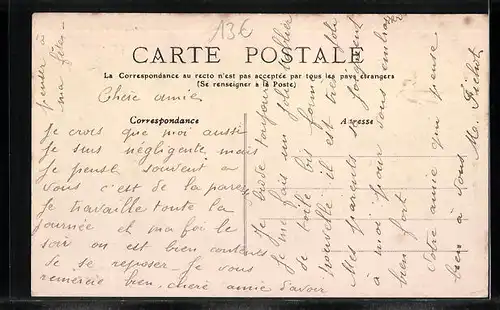 13€
CARTE POSTALE
La Correspondance au recto n'est pas acceptée par tous les pays étrangers
(Se renseigner à la Poste)
Correspondance
Adresse
Chère amie
Je crois que moi aussi
Je suis négligente mais
je pense souvent a
vous c'est de la paresse
Je travaille toute la
journée et ma foi le
soir on est bien contente
de se reposer Je vous
remercie bien, chère amie d'avoir
penser à
ma fête
Je brode toujours
Je me fais un joli tablier
de toile bis
nouvelle il est très joli
Mes parents se joignent
à moi pour vous embrasser
bien fort
Votre amie qui pense
bien à vous